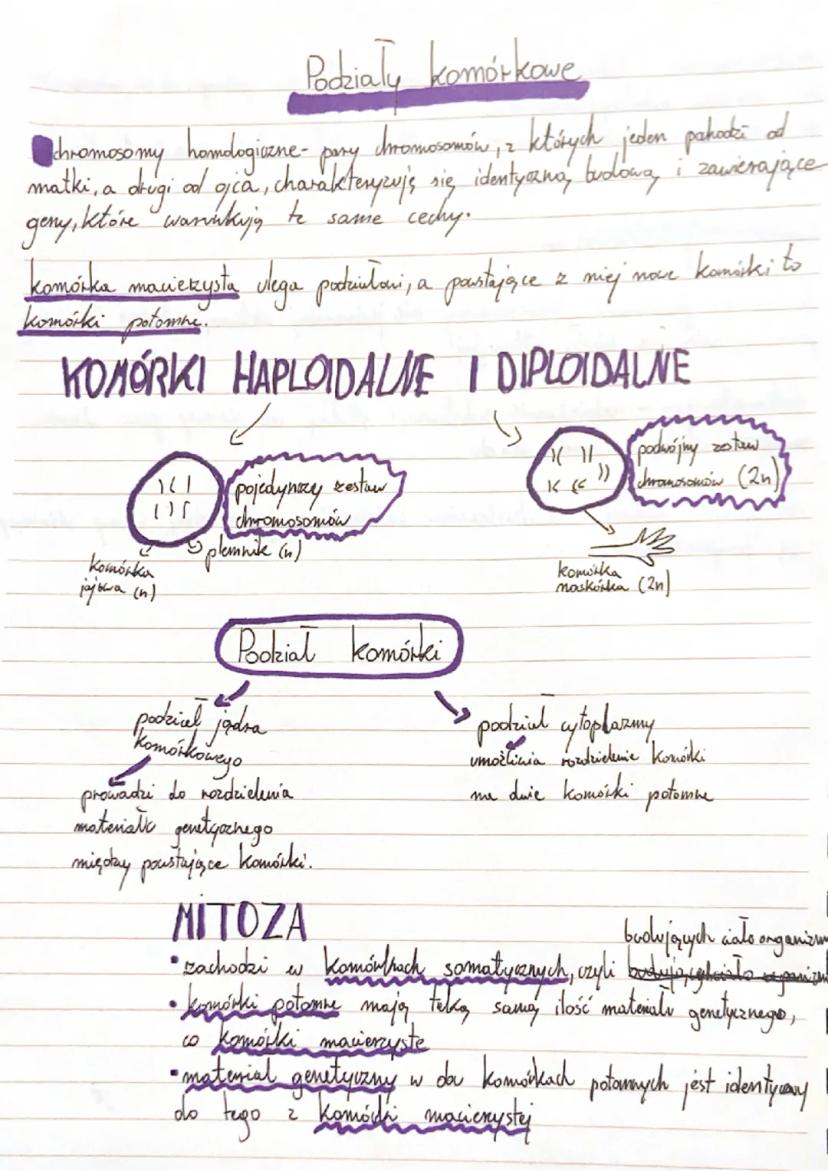 Podziały komórkowe
chromosomy homologiczne - pary chromosomów, z których jeden pochodzi od
matki, a drugi od ojca, charakteryzują się identyczną budową i zawierające
geny, które warunkują te same cechy.
komórka macierzysta ulega podziałowi, a powstające z niej nowe komórki to
komórki potomne.
KOMÓRKI HAPLOIDALNE I DIPLOIDALNE
pojedynczy zestaw
chromosomów
podwójny zestaw
chromosomów (2n)
komórka
jajowa (n)
plemnik (n)
komórka
naskórka (2n)
Podział komórki
podział jądra
komórkowego
prowadzi do rozdzielenia
materiału genetycznego
między powstające komórki.
podział cytoplazmy
umożliwia rozdzielenie komórki
na dwie komórki potomne
MITOZA
budujących ciało organizm
• zachodzi w komórkach somatycznych, czyli
• komórki potomne mają taką samą ilość materiału genetycznego,
co komórki macierzyste
• materiał genetyczny w obu komórkach potomnych jest identyczny
do tego z komórki macierzystej